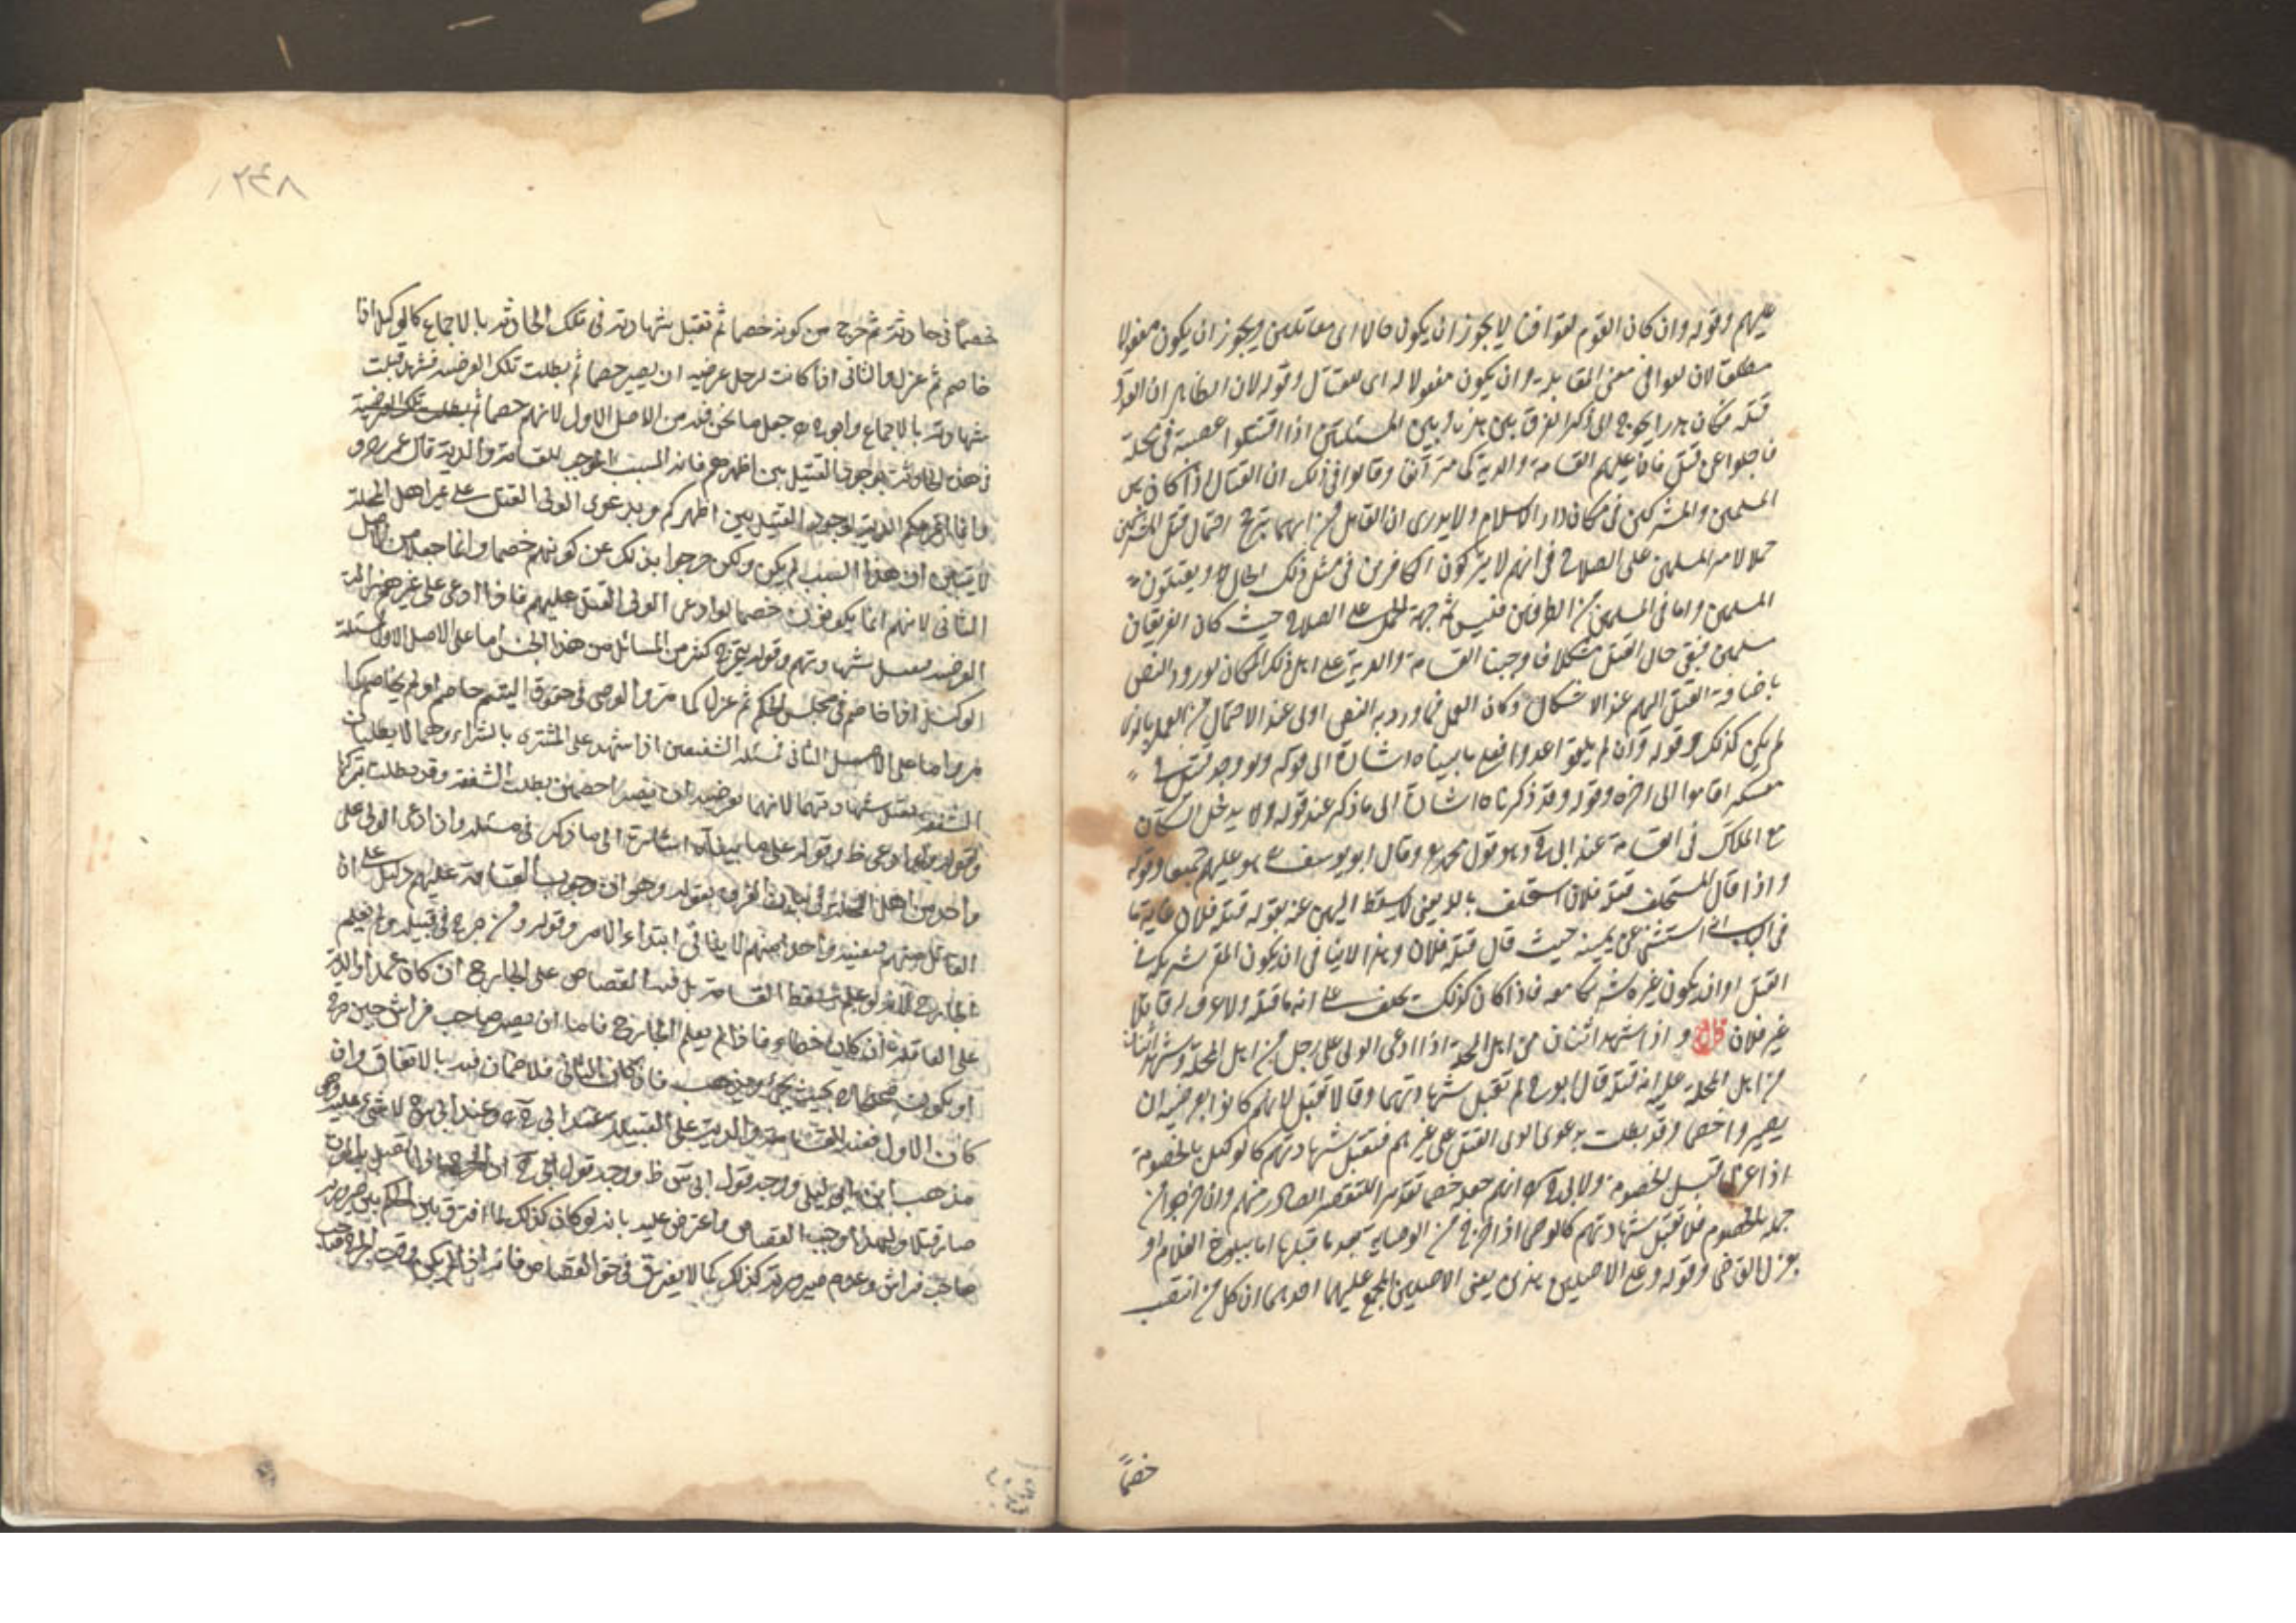 عليهم وقوله وان كان القوم لقوا قتالا يجوز ان يكون حالا اى مقاتلين ويجوز ان يكون مفعولا
مطلقا لان لقوا فى معنى المقابلة وان يكون مفعولا له اى للقتال وقوله لان الظاهر ان العدو
قتله فكان هدرا يحوج الى ذكر الفرق بين هذا وبين المسلمين اذا اقتتلوا عصبية فى محلة
فاجلوا عن قتيل فان عليهم القسامة والدية كما مر آنفا وقالوا فى ذلك ان القتال اذا كان بين
المسلمين والمشركين فى مكان دار الاسلام ولا يدرى ان القاتل من ايهما يترجح احتمال قتل المشركين
حملا لامر المسلمين على الصلاح فى انهم لا يتركون الكافرين فى مثل ذلك الحال ويقتلون
المسلمين واما فى المسلمين من الطرفين فليس ثمة جهة الحمل على الصلاح حيث كان الفريقان
مسلمين فبقى حال القتيل مشكلا فاوجبنا القسامة والدية على اهل ذلك المكان لورود النص
باضافة القتيل اليهم عند الاشكال وكان العمل بما ورد به النص اولى عند الاحتمال من العمل بالذى
لم يكن كذلك وقوله وان لم يلقوا عدوا فعلى ما بيناه اشارة الى قوله ولو وجد قتيل فى
معسكر اقاموا الى اخره وقوله وقد ذكرناه اشارة الى ما ذكر عند قوله ولا يدخل السكان
مع الملاك فى القسامة عند ابى ح وهو قول محمد وقال ابو يوسف هو عليهم جميعا وقوله
واذا قال المستحلف قتله فلان استحلف بالله يعنى لا يسقط اليمين عنه بقوله قتله فلان غاية ما
فى الباب انه استثنى عن يمينه حيث قال قتله فلان وهذا لا ينافى ان يكون المقر شريكه فى
القتل او ان يكون غيره شريكا معه فاذا كان كذلك يحلف على انه ما قتله ولا عرف له قاتلا
غير فلان قال واذا شهد اثنان من اهل المحلة اذا ادعى الولى على رجل من اهل المحلة وشهد اثنان
من اهل المحلة عليه انه قتله قال ابو ح لم تقبل شهادتهما وقالا تقبل لانهم كانوا بعرضية ان
يصيروا خصما وقد بطلت بدعوى الولى القتل على غيرهم فتقبل شهادتهم كالوكيل بالخصومة
اذا عزل قبل الخصومة ولابى ح انهم جعلوا خصما تقديرا للتقصير الصادر منهم وان خرجوا من
جملة الخصوم فلا تقبل شهادتهم كالوصى اذا خرج من الوصاية بعد ما قبلها اما ببلوغ الغلام او
بعزل القاضى وقوله وعلى الاصلين هذين يعنى الاصلين المجمع عليهما احدهما ان كل من انتصب
خصمًا
٢٤٨
خصمًا فى حادثة ثم خرج من كونه خصما ثم تقبل شهادته فى تلك الحادثة بالاجماع كالوكيل اذا
خاصم ثم عزل والثانى اذا كانت لرجل عرضية ان يصير خصما ثم بطلت تلك العرضية فشهد قبلت
شهادته بالاجماع وابو ح جعل ما نحن فيه من الاصل الاول لانهم خصما ثم بطلت تلك العرضية
فى هذه الحادثة بوجود القتيل بين اظهرهم فانه السبب الموجب للقسامة والدية قال عمر رضه
وانما اغرمكم الدية لوجود القتيل بين اظهركم وبدعوى الولى القتل على غير اهل المحلة
لا يتبين ان هذا السبب لم يكن ولكن خرجوا بذلك عن كونهم خصما وانما جعلاه من الاصل
الثانى لانهم انما يكونون خصما لو ادعى الولى القتل عليهم فاذا ادعى على غيرهم زالت
العرضية فتقبل شهادتهم وقوله يتخرج كثير من المسائل من هذا الجنس اما على الاصل الاول فمسئلة
الوكيل اذا خاصم فى مجلس الحكم ثم عزل كما مر والوصى فى حقوق اليتيم خاصم او لم يخاصم كما
مر واما على الاصل الثانى فمسئلة الشفيعين اذا شهدا على المشترى بالشراء وهما لا يطلبان
الشفعة تقبل شهادتهما لانهما بعرضية ان يصيرا خصمين بطلب الشفعة وقد بطلت بتركها
وقوله ولو ادعى ظ وقوله على ما بيناه اشارة الى ما ذكر فى مسئلة وان ادعى الولى على
واحد من اهل المحلة فى بيان الفرق بقوله وهو ان وجوب القسامة عليهم دليل على ان
القاتل منهم فتعيينه واحدا منهم لا ينافى ابتداء الامر وقوله ومن جرح فى قبيلة ولم يعلم
الجارح لانه لو علم سقط القسامة بل فيه القصاص على الجارح ان كان عمدا والدية
على العاقلة ان كان خطاء فاذا لم يعلم الجارح فاما ان يصير صاحب فراش حين جرح
او يكون صحيحا بحيث يجئ ويذهب فان كان الثانى فلا ضمان فيه بالاتفاق وان
كان الاول ففيه القسامة والدية على القبيلة عند ابى ح وعند ابى س لا شئ عليه وهو
مذهب ابن ابى ليلى ووجه قول ابى س ظ ووجه قول ابى ح ان الجرح اذا اتصل به الموت
صار قتلا ولهذا وجب القصاص واعترض عليه بانه لو كان كذلك لما افترق بين الحكم بين صيرورته
صاحب فراش وعدم صيرورته كذلك كما لا يفترق فى حق القصاص فانه اذا لم يكن وقت الجرح صاحب